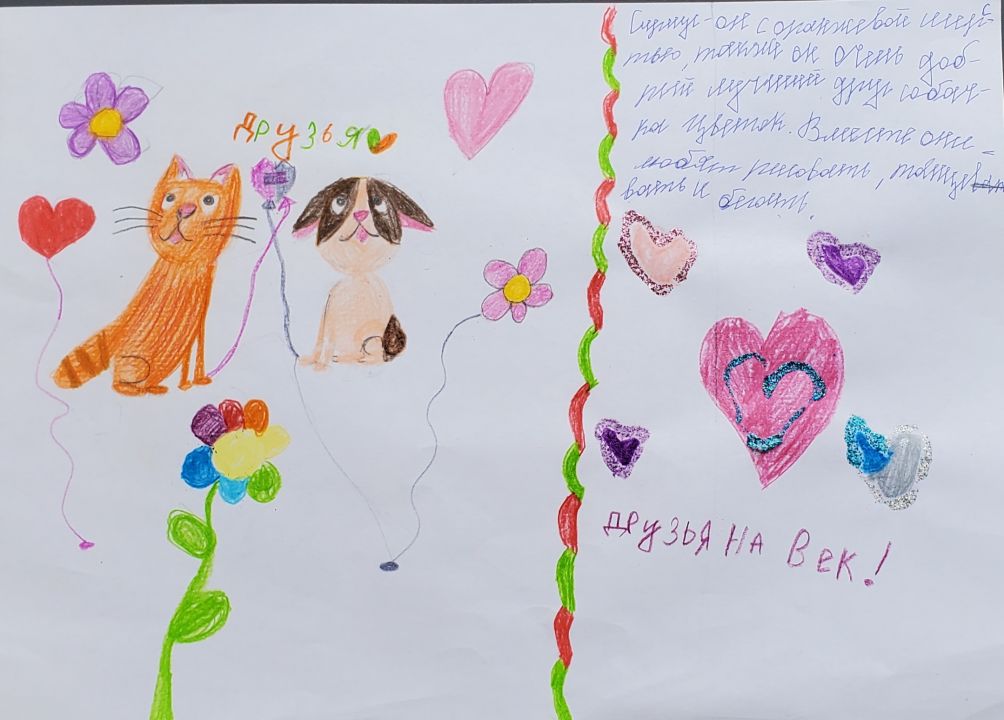 ДРУЗЬЯ
с оранжевой шерс-
тью, он очень доб-
рый лучший друг собач-
ка Цветок. Вместе они
любят рисовать, танце
вать и бегать.
ДРУЗЬЯ НА ВЕК!